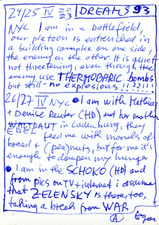 24/25 IV 20 23 DREAMS 93
NYC I am in a battlefield,
our platoon is entrenched in
a building complex on one side,
the enemy on the other. It is quiet
not threatening, even tho' the
enemy use THERMOBARIC bombs
but still no explosions !! 22!!!
26/27 IV NYC • I am with
+ Denise Reuter (HD) and her mother
in Ladenburg, they
feed me with morsels of
bread + (pea)nuts, but for me it's
enough to dampen my hunger
• I am in the SCHOKO (HD) and
from pics on TV + internet I assume
that ZELENSKY is there, too,
taking a break from WAR.
(A)